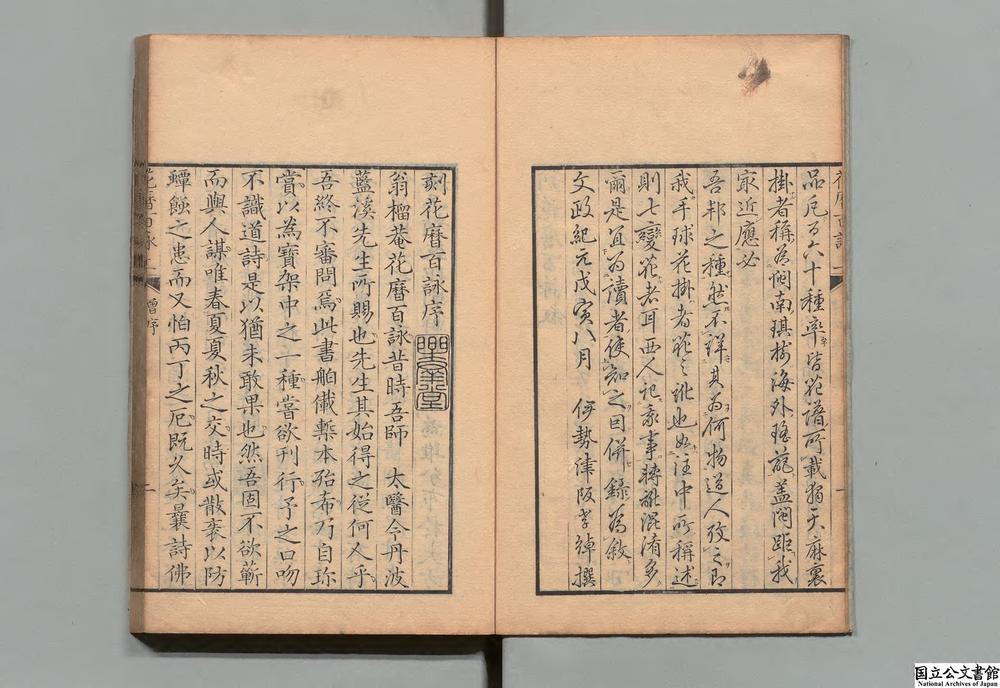 品凡百六十種率皆花譜所載獨天麻裏
掛者稱為閩南琪樹海外瑤葩蓋閩距我
最近應必
吾邦之種然不詳其為何物道人攷之即
我手球花掛者花之訛也如注中所稱述
則七變花者耳西人記象事轉訛混淆多
爾是宜為讀者使知之因併錄為敘
文政紀元戊寅八月　伊勢津阪孝綽撰
刻花曆百詠序
翁榴菴花曆百詠昔時吾師　太醫令丹波
藍溪先生所賜也先生其始得之從何人乎
吾終不審問焉此書舶儎槧本殆希乃自珍
賞以為寶架中之一種嘗欲刊行予之口吻
不識道詩是以猶未敢果也然吾固不欲蘄
而與人謀唯春夏夏秋之交時或散帙以防
蟫蝕之患而又怕丙丁之厄既久矣曩詩佛
花曆百詠
增序
国立公文書館
National Archives of Japan